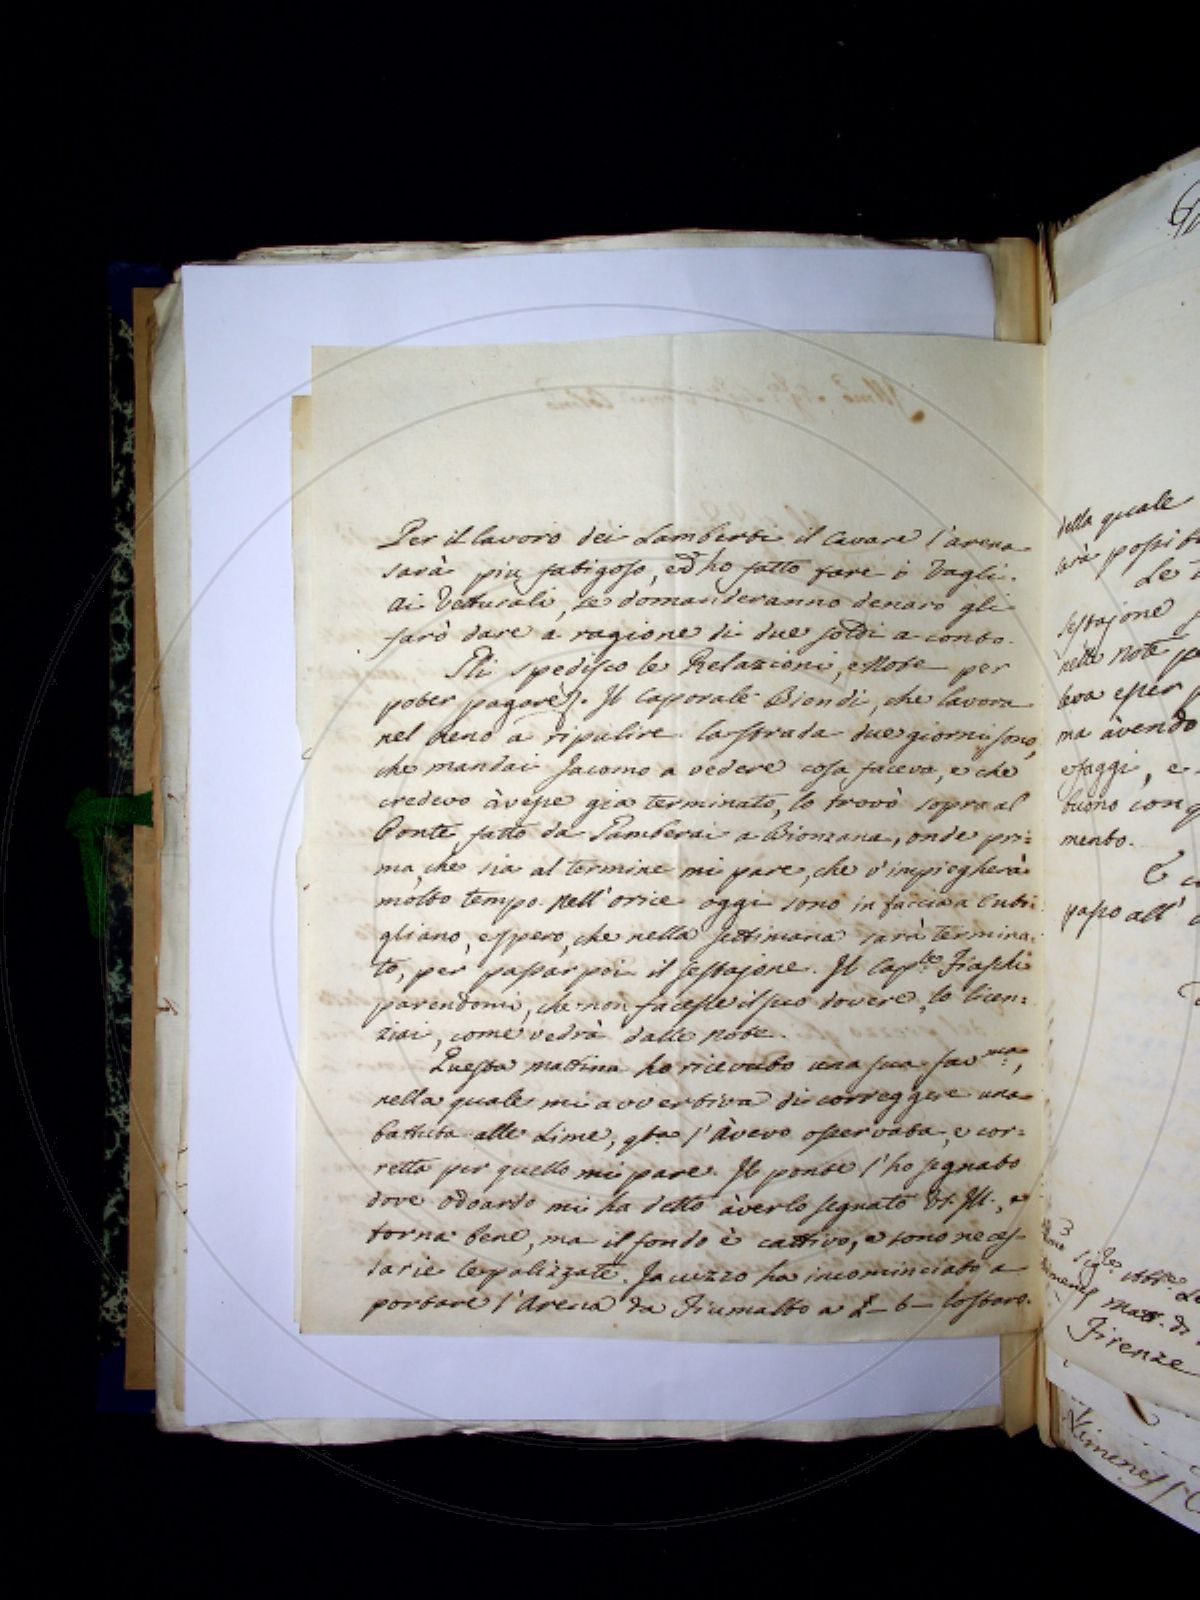 Per il lavoro dei Lamberti il cavare l'arena
sarà piu fatigoso, ed ho fatto fare i Vagli.
Ai Vetturali, se domanderanno denaro gli
farò dare a ragione di due soldi a conto.
Gli spedisco le Relazioni, e Note per
poter pagare. Il Caporale Biondi, che lavora
nel Reno a ripulire la strada due giorni sono,
che mandai Jacomo a vedere cosa faceva, e che
credevo àvesse gia terminato, lo trovò sopra al
Ponte fatto da Gamberai a Bionzana, onde pri=
ma, che sia al termine mi pare, che v'impiegherà
molto tempo. Nell'orice oggi sono in faccia a Cuti=
gliano, e spero, che nella settimana sarà termina=
to, per passar poi il sestajone. Il Cap.le Fiaschi
parendomi, che non facesse il suo dovere, lo licen=
ziai, come vedrà dalle note.
Questa mattina ho ricevuto una sua fav.ma,
nella quale mi avvertiva di correggere una
battuta alle Lime, q.ta l'àvevo osservata, e cor=
retta per quello mi pare. Il ponte l'ho segnato
dove Odoardo mi ha detto àverlo segnato V.S. Ill., e
torna bene, ma il fondo è cattivo, e sono neces-
sarie le palizzate. Jacuzzo ha incominciato a
portare l'Arena da Fiumalbo a £ - 6 - lo staro.
della quale
arà possibi
Le
sestajone
nelle note
leva esser
ma àvendo
e faggi, e
buono
mento.
passo all'
Sig.re Abb.e
Ximenes Mat. di
Firenze
Ximenes